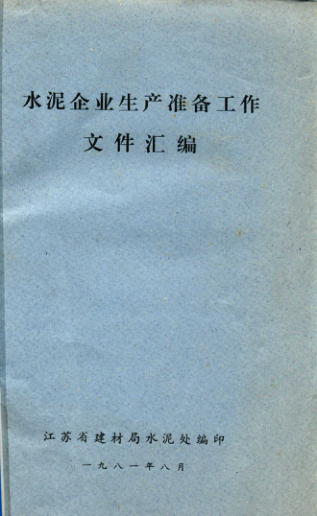 水泥企业生产准备工作
文件汇编
江苏省建材局水泥处编印
一九八一年八月